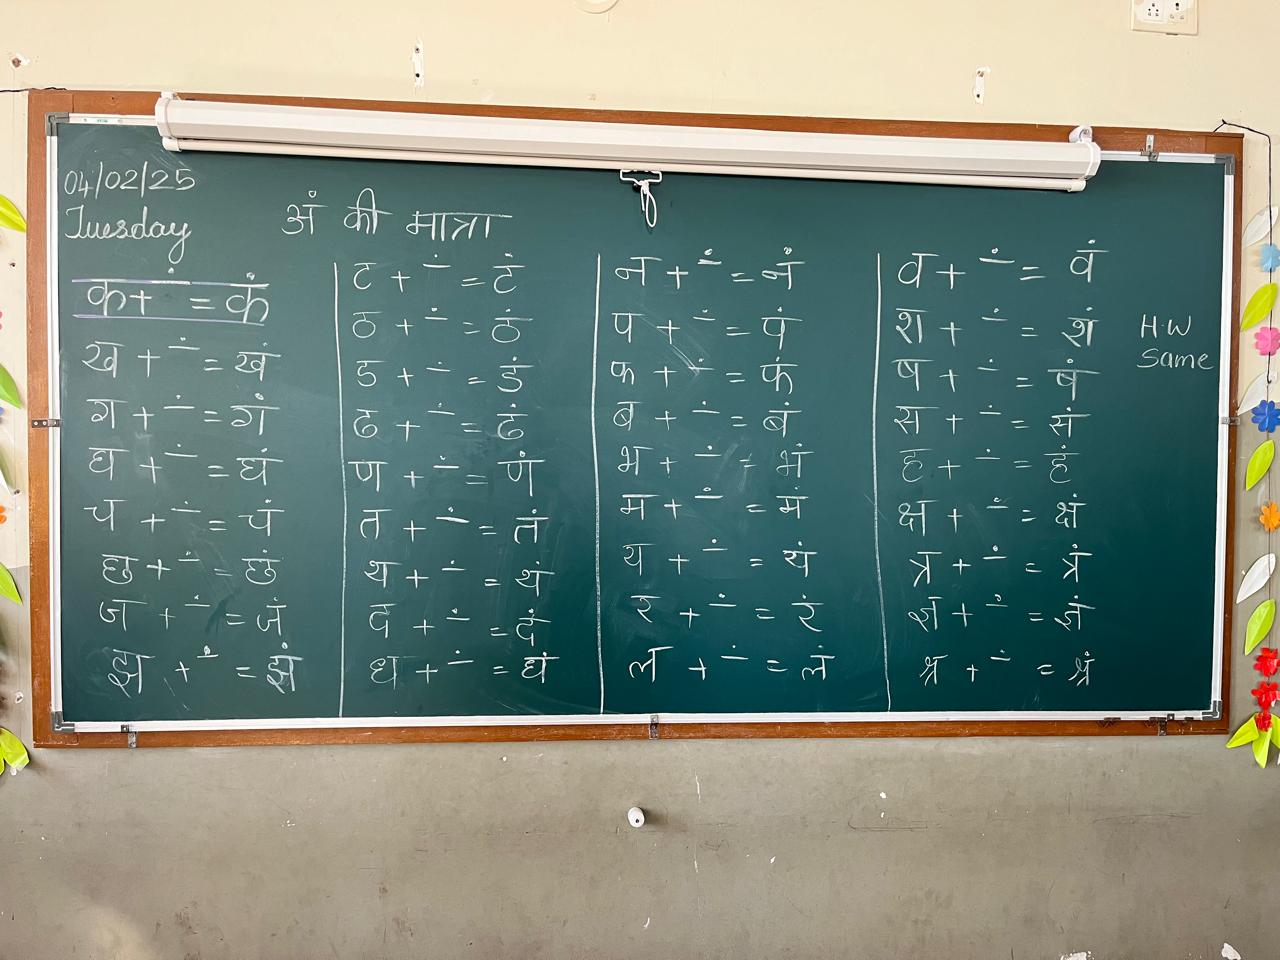 04/02/25
Tuesday
अं की मात्रा
क + ∸ = कं
ख + ∸ = खं
ग + ∸ = गं
घ + ∸ = घं
च + ∸ = चं
छ + ∸ = छं
ज + ∸ = जं
झ + ∸ = झं
ट + ∸ = टं
ठ + ∸ = ठं
ड + ∸ = डं
ढ + ∸ = ढं
ण + ∸ = णं
त + ∸ = तं
थ + ∸ = थं
द + ∸ = दं
ध + ∸ = धं
न + ∸ = नं
प + ∸ = पं
फ + ∸ = फं
ब + ∸ = बं
भ + ∸ = भं
म + ∸ = मं
य + ∸ = यं
र + ∸ = रं
ल + ∸ = लं
व + ∸ = वं
श + ∸ = शं
ष + ∸ = षं
स + ∸ = सं
ह + ∸ = हं
क्ष + ∸ = क्षं
त्र + ∸ = त्रं
ज्ञ + ∸ = ज्ञं
श्र + ∸ = श्रं
H.W
Same